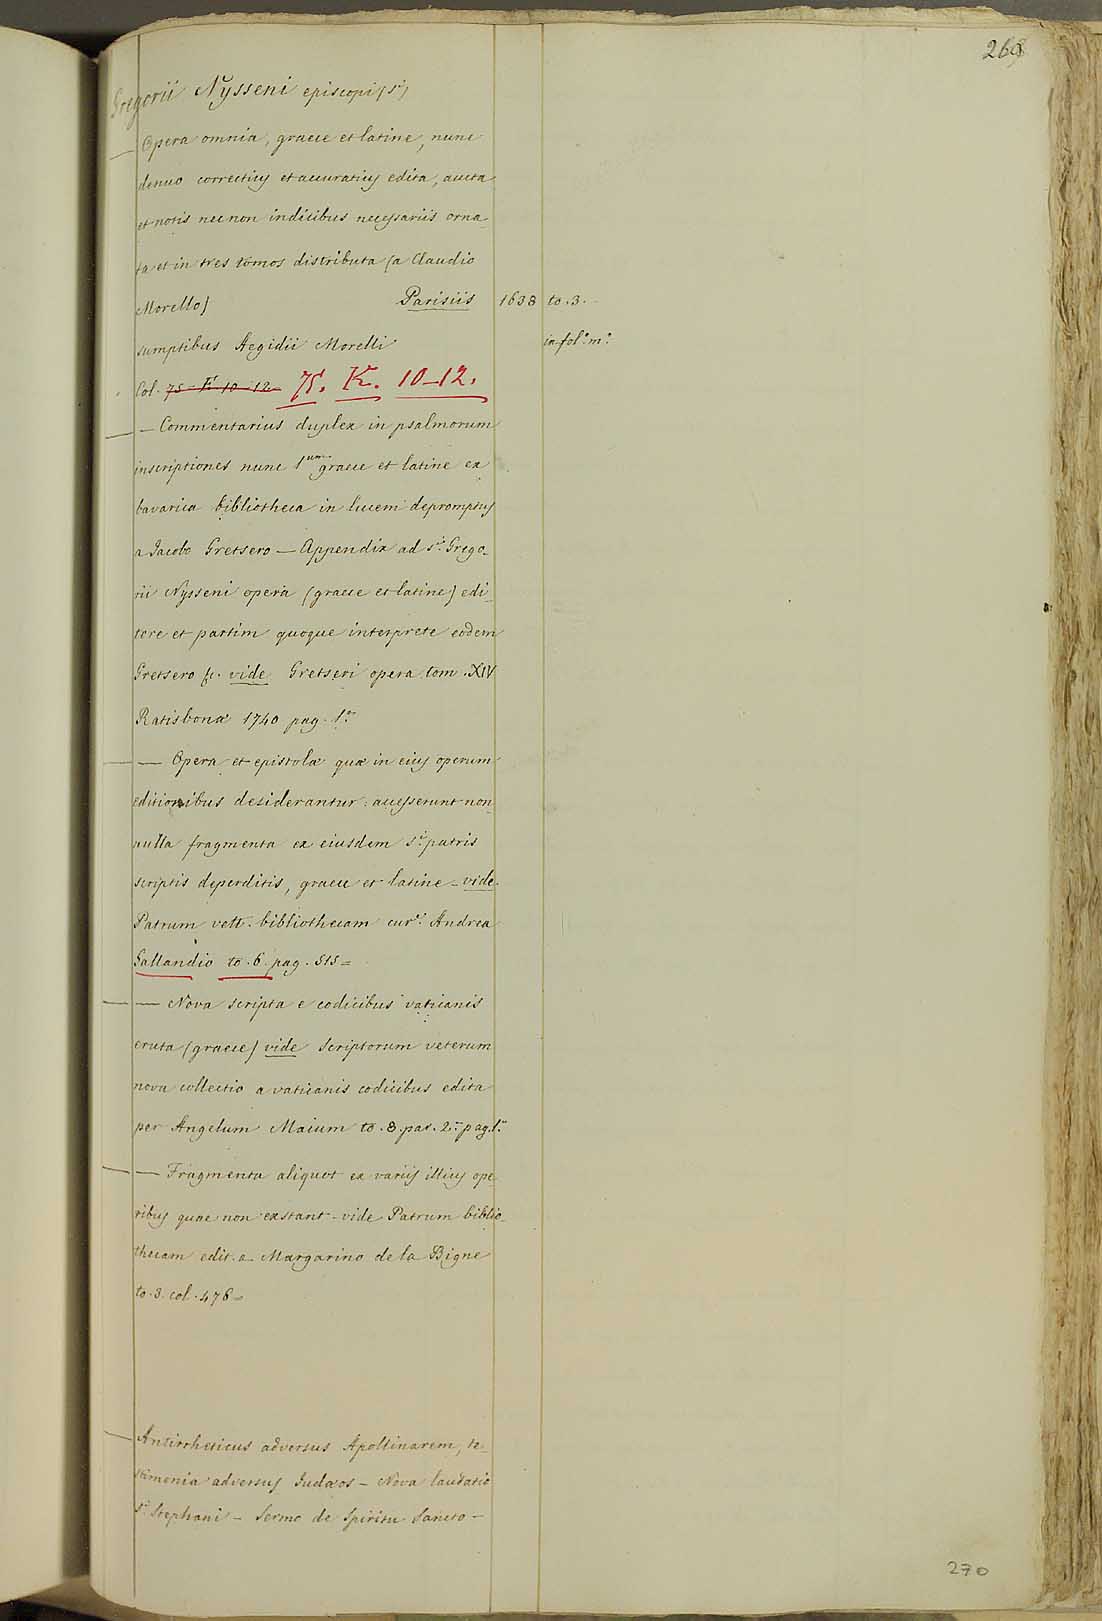 268
Gregorii Nysseni episcopi (S.i)
Opera omnia, graece et latine, nunc
denuo correctius et accuratius edita, aucta
et notis nec non indicibus necessariis orna_
ta et in tres tomos distributa (a Claudio
Morello) Parisiis 1638 to. 3.
sumptibus Aegidii Morelli in fol.o m.o
Col. 75 - K 10 - 12 75. K. 10-12.
— Commentarius duplex in psalmorum
inscriptiones nunc 1um graece et latine ex
bavarica bibliotheca in lucem depromptus
a Jacobo Gretsero — Appendix ad S.i Grego_
rii Nysseni opera (graece et latine) edi_
tore et partim quoque interprete eodem
Gretsero vide Gretseri opera tom. XIV
Ratisbonæ 1740 pag. 1.
— Opera et epistolæ quæ in eius operum
editionibus desiderantur: accesserunt non_
nulla fragmenta ex eiusdem S.i patris
scriptis deperditis, graece et latine - vide
Patrum vett. bibliothecam cur. Andrea
Gallandio to. 6. pag. 515 =
— Nova scripta e codicibus vaticanis
eruta (graece) vide Scriptorum veterum
nova collectio a vaticanis codicibus edita
per Angelum Maium to. 8. par. 2. pag. 1.
— Fragmenta aliquot ex variis illius ope_
ribus quae non exstant - vide Patrum biblio_
thecam edit. a Margarino de la Bigne
to. 3. col. 476 =
Antirrheticus adversus Apollinarem, te_
stimonia adversus Judæos - Nova laudatio
S.i Stephani - Sermo de Spiritu Sancto -
270